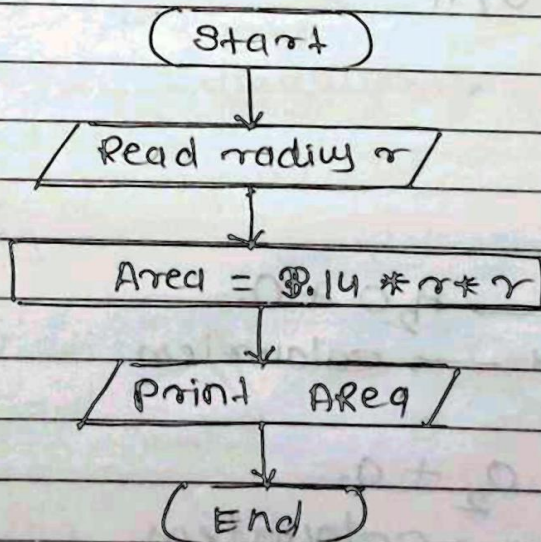 Start
Read radius r
Area = 3.14 * r * r
Print AReq
End